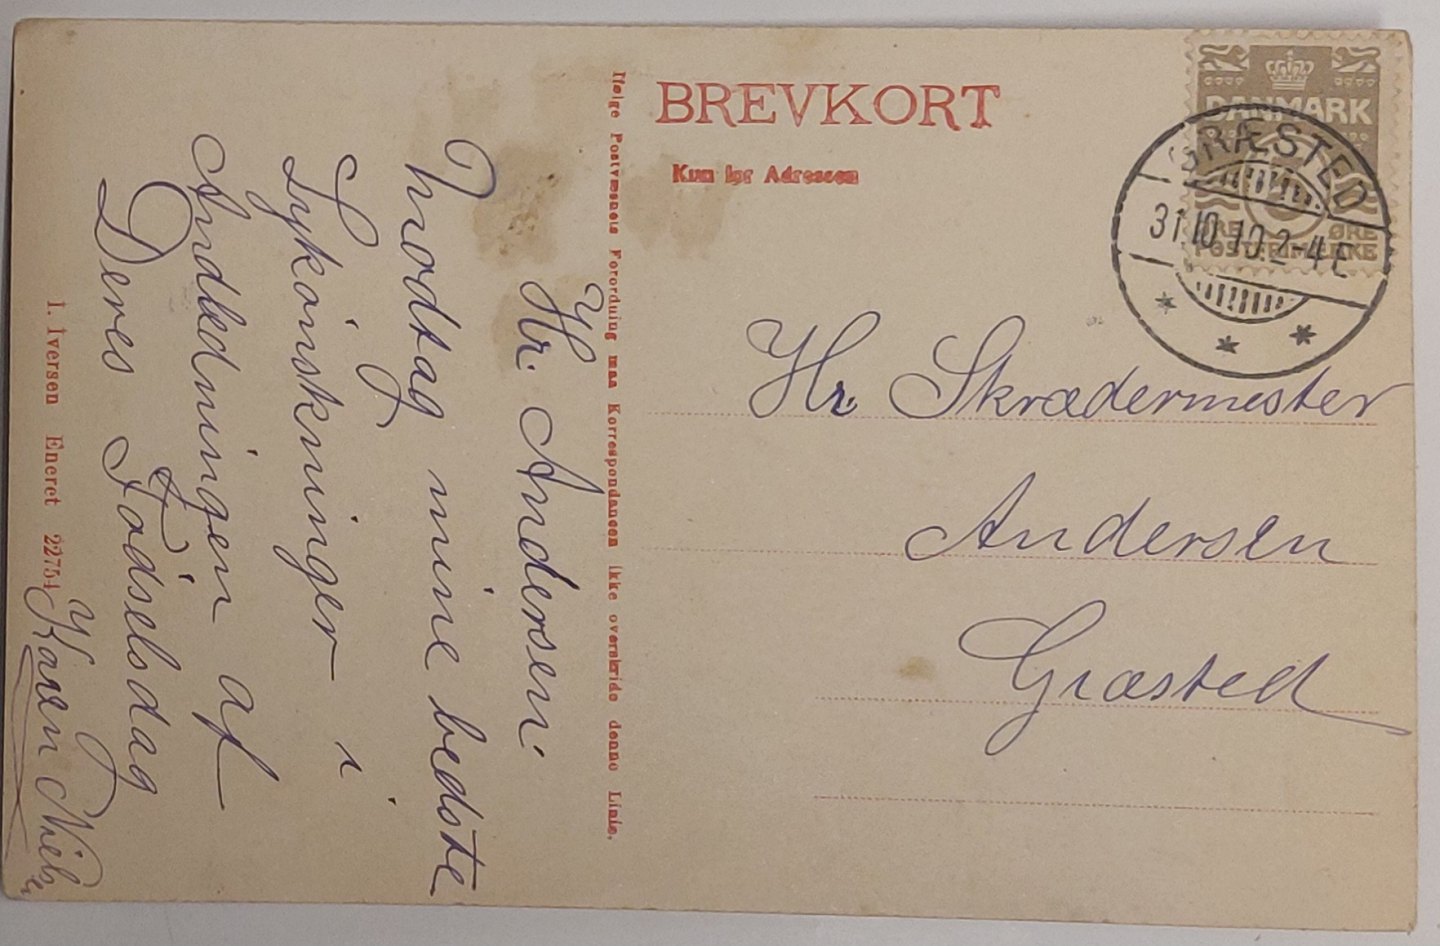 BREVKORT
Kun for Adressen
DANMARK
ØRE ØRE
POSTFRIMÆRKE
GRÆSTED
31.10.10.2-4 E
Hr. Skrædermester
Andersen
Græsted
Ifølge Postvæsnets Forordning maa Korrespondancen ikke overskride denne Linie.
Hr. Andersen.
Modtag mine bedste
Lykönskninger i
Andledningen af
Deres Födselsdag
Karen Niels
I. Iversen Eneret 22754